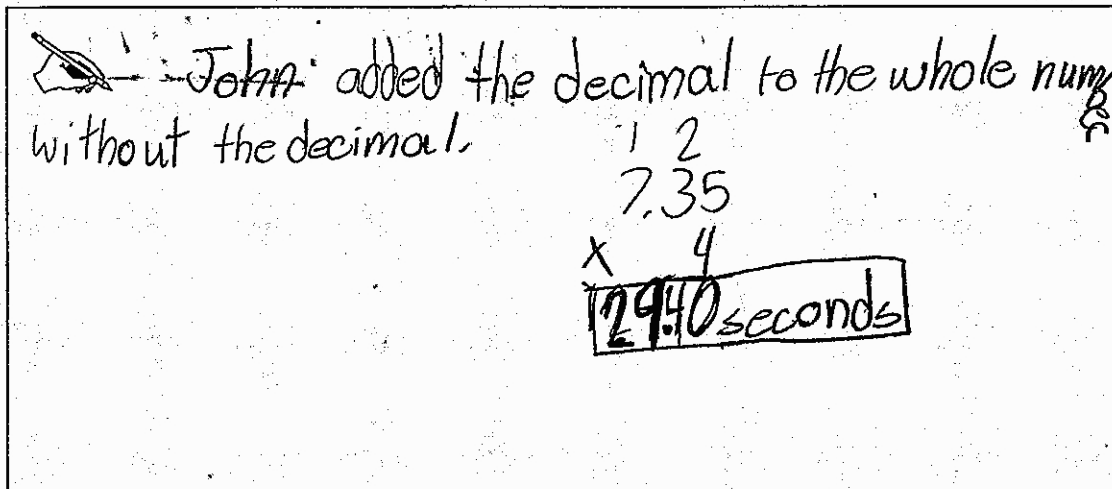 John added the decimal to the whole number
without the decimal.
1 2
7.35
x 4
29.40 seconds